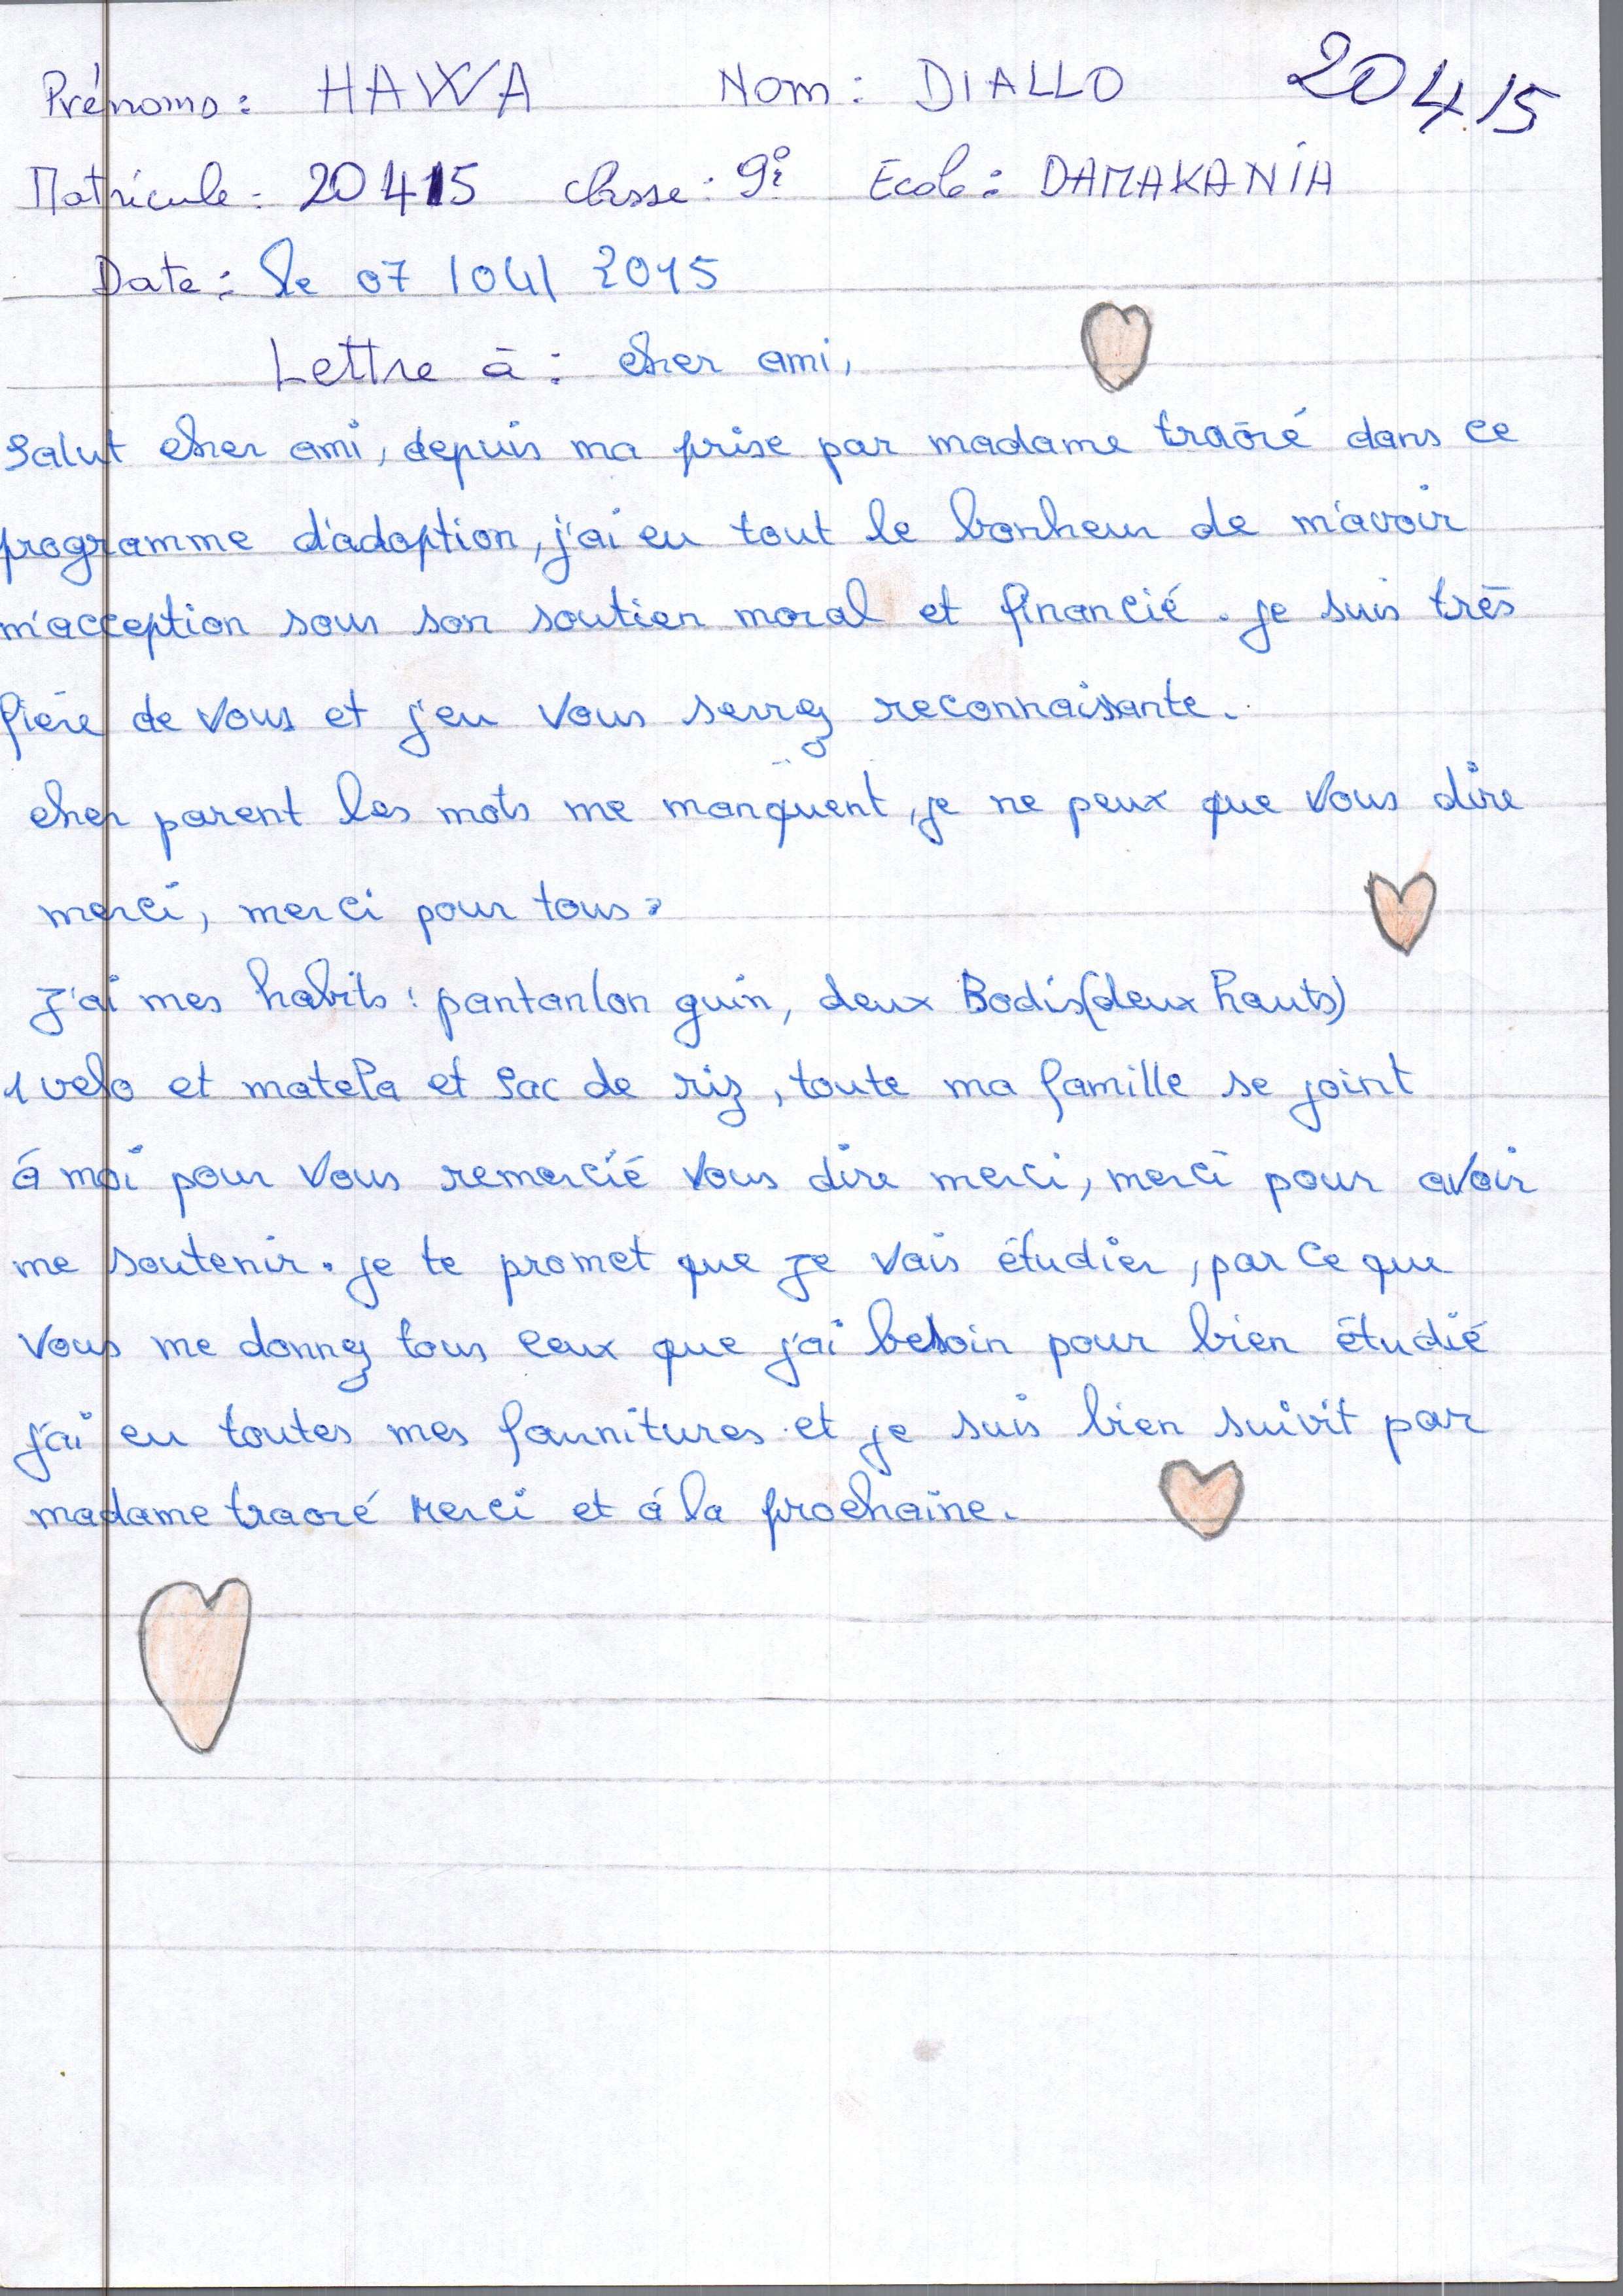 Prénoms : HAWA Nom : DIALLO 20415
Matricule : 20415 classe : 9è Ecole : DAMAKANIA
Date : le 07 /04/ 2015
Lettre à : cher ami,
Salut cher ami, depuis ma prise par madame traoré dans ce
programme d'adoption, j'ai eu tout le bonheur de m'avoir
m'acception sous son soutien moral et financié. je suis très
fière de vous et j'eu vous serrez reconnaissante.
cher parent les mots me manquent, je ne peux que vous dire
merci, merci pour tous.
J'ai mes habits : pantanlon guin, deux Bodis(deux hauts)
1 velo et matela et sac de riz, toute ma famille se joint
à moi pour vous remercié vous dire merci, merci pour avoir
me soutenir. je te promet que je vais étudier, par ce que
vous me donnez tous ceux que j'ai besoin pour bien étudié
j'ai eu toutes mes founnitures et je suis bien suivit par
madame traoré Merci et à la prochaine.